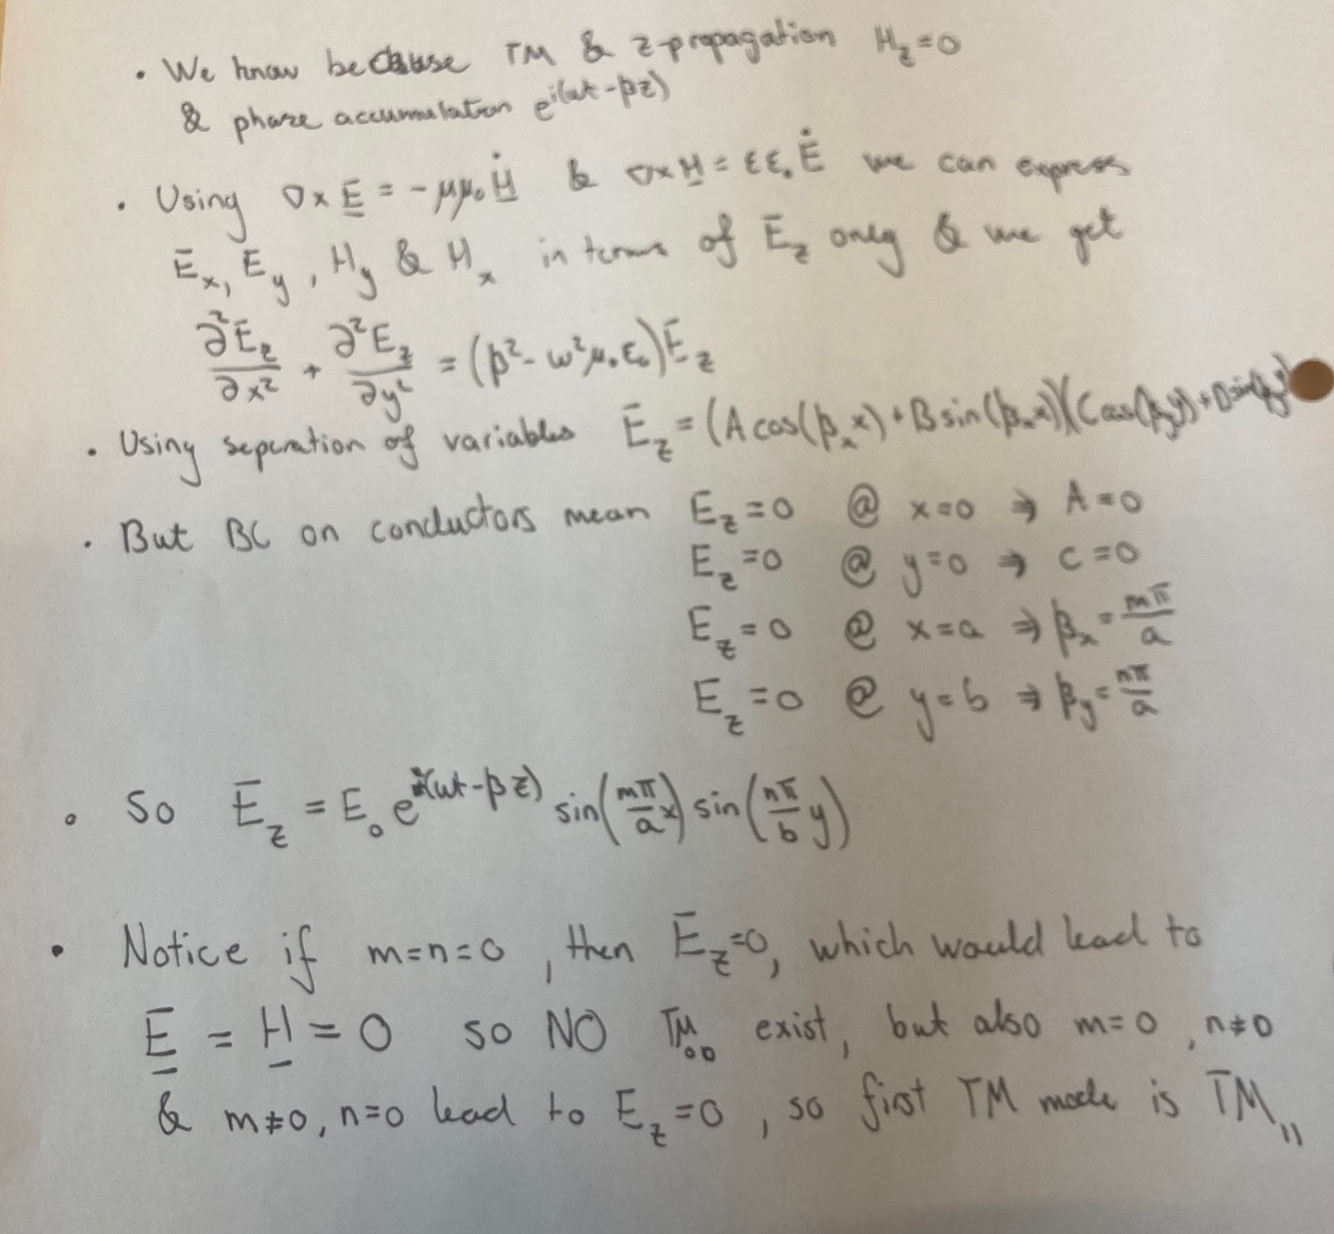 • We know because TM & z-propagation H_z=0
& phase accumulation e^{i(ωt-βz)}
• Using ∇×E = -μμ₀Ḣ & ∇×H = εε₀Ė we can express
E_x, E_y, H_y & H_x in terms of E_z only & we get
∂²E_z/∂x² + ∂²E_z/∂y² = (β²-ω²μ₀ε₀)E_z
• Using seperation of variables E_z = (A cos(β_x x)+B sin(β_x x))(C cos(β_y y)+D sin(β_y y)
• But BC on conductors mean E_z=0 @ x=0 ⇒ A=0
E_z=0 @ y=0 ⇒ C=0
E_z=0 @ x=a ⇒ β_x = mπ/a
E_z=0 @ y=b ⇒ β_y = nπ/a
• So E_z = E₀ e^{i(ωt-βz)} sin(mπ/a x) sin(nπ/b y)
• Notice if m=n=0, then E_z=0, which would lead to
E = H = 0 so NO TM₀₀ exist, but also m=0, n≠0
& m≠0, n=0 lead to E_z=0, so first TM mode is TM₁₁